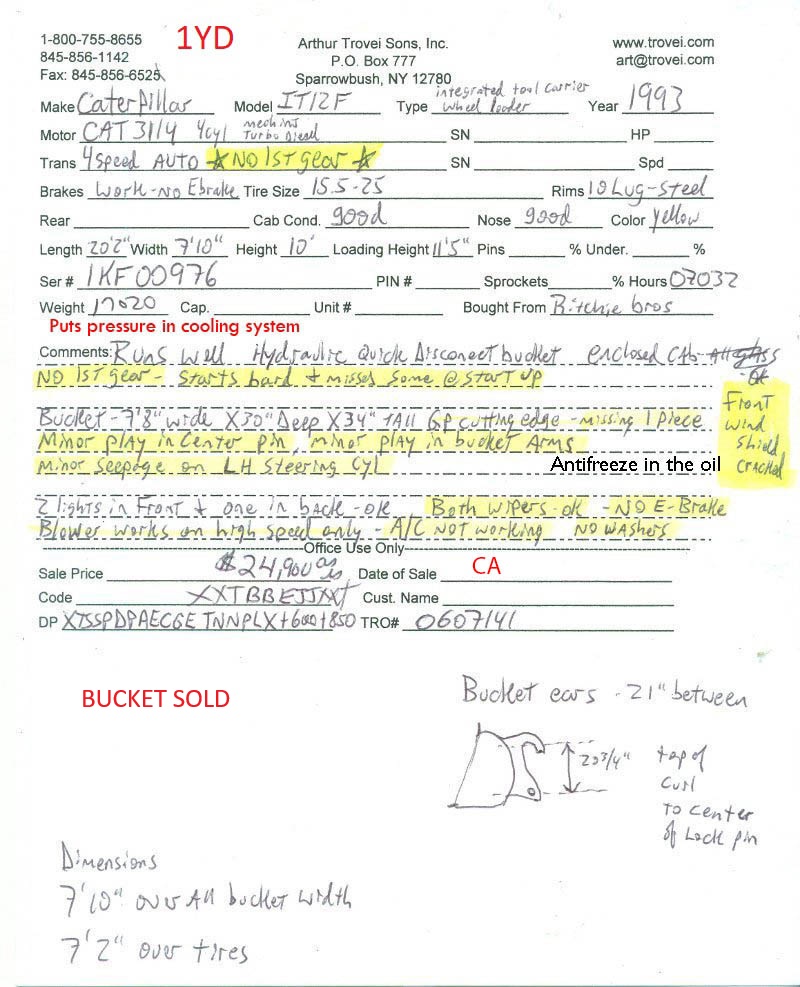 1-800-755-8655 1YD Arthur Trovei Sons, Inc. www.trovei.com
845-856-1142 P.O. Box 777 art@trovei.com
Fax: 845-856-6525 Sparrowbush, NY 12780
Make Caterpillar Model IT12F Type integrated tool carrier wheel loader Year 1993
Motor CAT 3114 4cyl Turbo Diesel SN HP
Trans 4 speed AUTO ☆ NO 1ST gear ☆ SN Spd
Brakes Work-NO Ebrake Tire Size 15.5-25 Rims 10 Lug-Steel
Rear Cab Cond. good Nose good Color Yellow
Length 20'2" Width 7'10" Height 10' Loading Height 11'5" Pins % Under. %
Ser # 1KF00976 PIN # Sprockets % Hours 07032
Weight 17020 Cap. Unit # Bought From Ritchie bros
Puts pressure in cooling system
Comments: Runs well Hydraulic Quick Disconect bucket enclosed CAb- All glass -OK
NO 1ST gear - Starts hard + misses some @ START UP
Front wind shield cracked
Bucket - 7'8" wide X 30" Deep X 34" TAll GP cutting edge - missing 1 Piece
Minor play in Center pin, minor play in bucket Arms
Minor Seepage on LH Steering Cyl Antifreeze in the oil
2 lights in Front + one in back - ok Both wipers - ok - NO E-Brake
Blower works on high speed only - A/C NOT working NO WASHERS
Office Use Only
Sale Price $24,900 as is Date of Sale CA
Code XXTBBEJJXXT Cust. Name
DP XTSSPDPAECGETNNPLX+600+850 TRO# 0607141
BUCKET SOLD
Bucket ears - 21" between
20 3/4" top of
Curl
TO Center
of Lock pin
Dimensions
7'10" over All bucket width
7'2" over tires